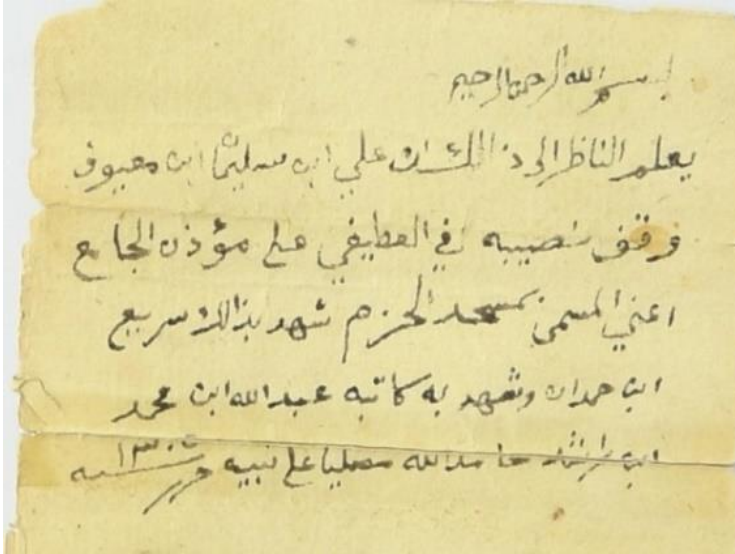 بسم الله الرحمن الرحيم
يعلم الناظر الى ذالك ان علي ابن سليمان ابن معيوف
وقف نصيبه في العطيفي على مؤذن الجامع
اعني المسمى بمسجد الحزم شهد بذالك سريع
ابن حمدان وشهد به كاتبه عبدالله ابن محمد
ابن راشد حامد لله مصليا على نبيه حرر سنه